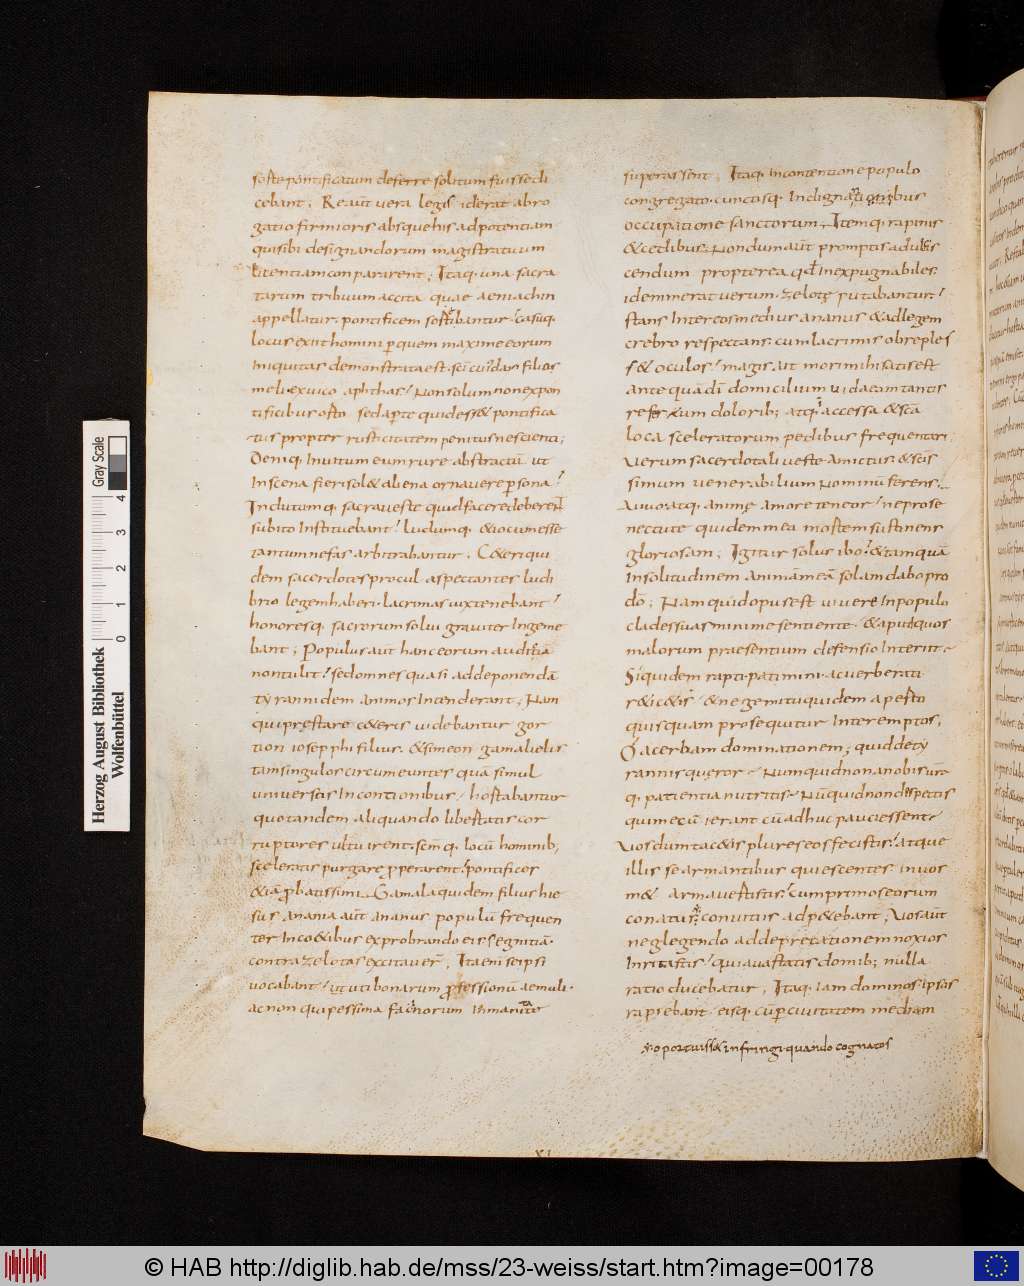 sorte pontificatum deferre solitum fuisse di
cebant; Re aut̄ vera legis id erat abro
gatio firmioris absque his ad potentiam
quisibi designandorum magistratuum
licentiam conpararent; Itaq. una sacra
tarum tribuum accita quae aeniachin
appellatur. pontificem sortibantur. casuq.
locus exiit homini p quem maxime eorum
iniquitas demonstrata est.
meli ex vico aphthas. Non solum non ex pon
tificibus orto sed aperte quid ess& pontifica
tus propter rusticitatem penitus nescienti;
Deniq. Invitum eum rure abstractū ut
In scena fieri sol& aliena ornavere p sona
Indutumq. sacra veste quid facere deberet
subito Instituebant. ludumq. & iocum esse
tantum nefas arbitrabantur. C&eri qui
dem sacerdotes procul aspectantes ludi
brio legem haberi. lacrimas vix tenebant
honoresq. sacrorum solvi graviter Ingeme
bant; Populus aut̄ hanc eorum audatiā
non tulit. sed omnes quasi ad deponendā
tyrannidem animos Intenderant. Nam
qui prestare c&eris videbantur gor
tion ioseph phi filius. & simeon gamalielis
tam singulos circumeuntes quā simul
universos In contionibus. hortabantur
quo tandem aliquando libertatis cor
ruptores ulturi irent. scm̄q. locū hominib,
sceleratis purgare properarent. pontifices
&iā probatissimi. Gamala quidem filius hie
sus anania aut̄ ananus populū frequen
ter In co&ibus exprobrando eis segnitiā.
contra zelotas excitaver̄. Ita enī se ipsi
vocabant. ut uti bonarum professionū aemuli.
ac non qui pessima facinorum Inmanitate
superassent; Itaq. In contentione populo
congregato. cunctisq. Indignantibus
occupatione sanctorum. Itemq. rapinis
& cedibus. Nondum aut̄ promptis ad ulcis
cendum propterea qd Inexpugnabiles.
id enim erat verum. zelote putabantur.
stans Inter eos medius ananus & ad legem
crebro respectans. cum lacrimis obreples
s& oculos. magis ait mori mihi satis est
ante quā dī domicilium viderem tantis
refertum dolorib; atq. accessa & scā
loca sceleratorum pedibus frequentari.
Verum sacerdotali veste amictus. & scis
simum venerabilium Nominū ferens.
Vivo atq. anime amore teneor. ne prose
nectute quidem mea mortem sustinens
gloriosam; Igitur solus ibo. & tamquā
In solitudinem animā meā solam dabo pro
dō; Nam quid opus est vivere In populo
clades suas minime sentiente. & apud quos
malorum praesentium defensio Interiit.
Siquidem rapti patimini. ac verberati
r&ic&is. & ne gemitu quidem aperto
quisquam prosequitur Interemptos.
O acerbam dominationem; quid dety
rannis queror. Numquid non a nobis ūr̄
q. patientia nutritis. Nūquid non despectis
qui mecū ierant cū adhuc pauci essent.
Vos dum tac&is plures eos fecistis. atque
illis se armantibus quiescentes. in vos
m& arma vertistis. cum primos eorum
conatus. convitiis adp&ebant. Vos aut̄
neglegendo ad depretationem noxios
Irritastis. qui avastatis domib; nulla
ratio ducebatur. Itaq. iam dominos ipsos
rapiebant. eisq. cū p civitatem mediam
oportuiss& infringi. quando cognatos
XI
Herzog August Bibliothek
Wolfenbüttel
0 1 2 3 4
Gray Scale
© HAB http://diglib.hab.de/mss/23-weiss/start.htm?image=00178